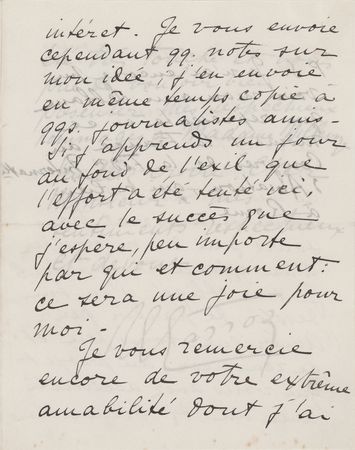 intéret. Je vous envoie
cependant qq. notes sur
mon idée, j'en envoie
en même temps copie à
qqs. journalistes amis –
Si j'apprends un jour
au fond de l'exil que
l'effort a été tenté ici
avec le succès que
j'espère, peu importe
par qui et comment:
ce sera une joie pour
moi –
Je vous remercie
encore de votre extrême
amabilité dont j'ai